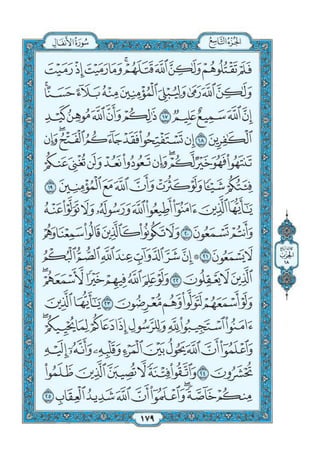 الجزء التاسع
سورة الأنفال
فَلَمْ تَقْتُلُوهُمْ وَلَٰكِنَّ اللَّهَ قَتَلَهُمْ ۚ وَمَا رَمَيْتَ إِذْ رَمَيْتَ
وَلَٰكِنَّ اللَّهَ رَمَىٰ وَلِيُبْلِيَ الْمُؤْمِنِينَ مِنْهُ بَلَاءً حَسَنًا ۚ
إِنَّ اللَّهَ سَمِيعٌ عَلِيمٌ ١٧ ذَٰلِكُمْ وَأَنَّ اللَّهَ مُوهِنُ كَيْدِ
الْكَافِرِينَ ١٨ إِن تَسْتَفْتِحُوا فَقَدْ جَاءَكُمُ الْفَتْحُ ۖ وَإِن
تَنتَهُوا فَهُوَ خَيْرٌ لَّكُمْ ۖ وَإِن تَعُودُوا نَعُدْ وَلَن تُغْنِيَ عَنكُمْ
فِئَتُكُمْ شَيْئًا وَلَوْ كَثُرَتْ وَأَنَّ اللَّهَ مَعَ الْمُؤْمِنِينَ ١٩
يَا أَيُّهَا الَّذِينَ آمَنُوا أَطِيعُوا اللَّهَ وَرَسُولَهُ وَلَا تَوَلَّوْا عَنْهُ
وَأَنتُمْ تَسْمَعُونَ ٢٠ وَلَا تَكُونُوا كَالَّذِينَ قَالُوا سَمِعْنَا وَهُمْ
لَا يَسْمَعُونَ ٢١ ۞ إِنَّ شَرَّ الدَّوَابِّ عِندَ اللَّهِ الصُّمُّ الْبُكْمُ
الَّذِينَ لَا يَعْقِلُونَ ٢٢ وَلَوْ عَلِمَ اللَّهُ فِيهِمْ خَيْرًا لَّأَسْمَعَهُمْ ۖ
وَلَوْ أَسْمَعَهُمْ لَتَوَلَّوا وَّهُم مُّعْرِضُونَ ٢٣ يَا أَيُّهَا الَّذِينَ
آمَنُوا اسْتَجِيبُوا لِلَّهِ وَلِلرَّسُولِ إِذَا دَعَاكُمْ لِمَا يُحْيِيكُمْ ۖ
وَاعْلَمُوا أَنَّ اللَّهَ يَحُولُ بَيْنَ الْمَرْءِ وَقَلْبِهِ وَأَنَّهُ إِلَيْهِ
تُحْشَرُونَ ٢٤ وَاتَّقُوا فِتْنَةً لَّا تُصِيبَنَّ الَّذِينَ ظَلَمُوا
مِنكُمْ خَاصَّةً ۖ وَاعْلَمُوا أَنَّ اللَّهَ شَدِيدُ الْعِقَابِ ٢٥
١٧٩
الحزب
١٨